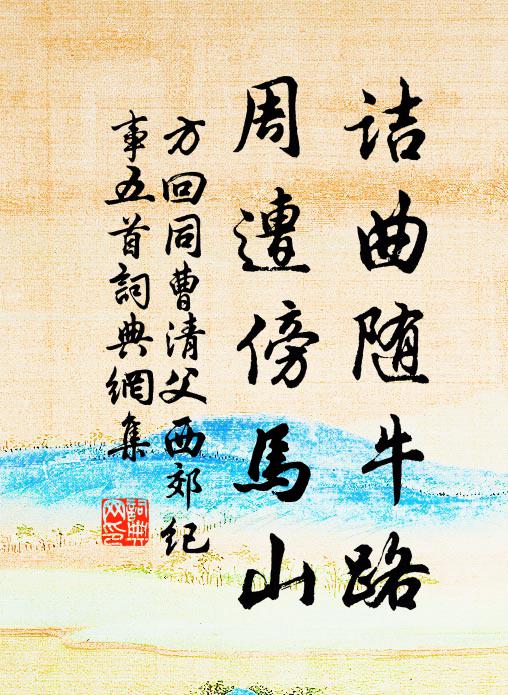 诘曲随牛路
周遭傍馬山
方回同曹清父西郊纪
事五首詞典網集
詞典网印